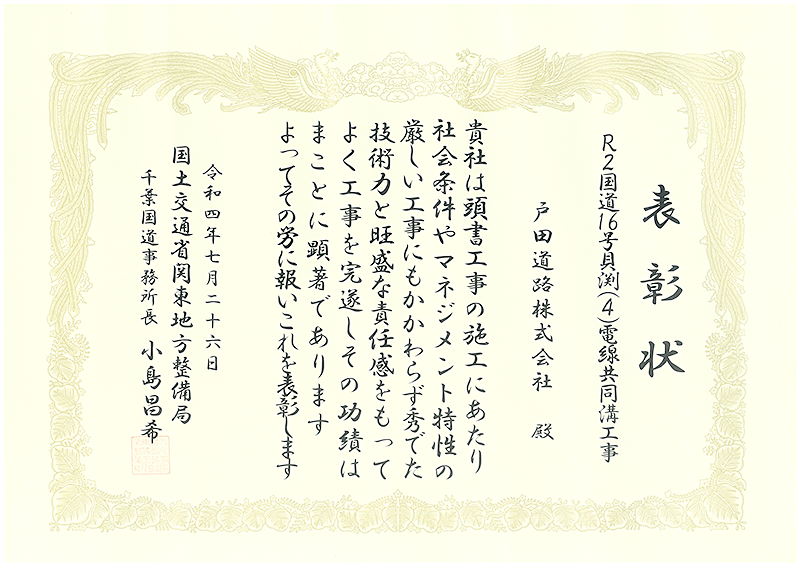 表彰状
R2国道16号貝渕(4)電線共同溝工事
戸田道路株式会社 殿
貴社は頭書工事の施工にあたり
社会条件やマネジメント特性の
厳しい工事にもかかわらず秀でた
技術力と旺盛な責任感をもって
よく工事を完遂しその功績は
まことに顕著であります
よってその労に報いこれを表彰します
令和四年七月二十六日
国土交通省関東地方整備局
千葉国道事務所長 小島昌希